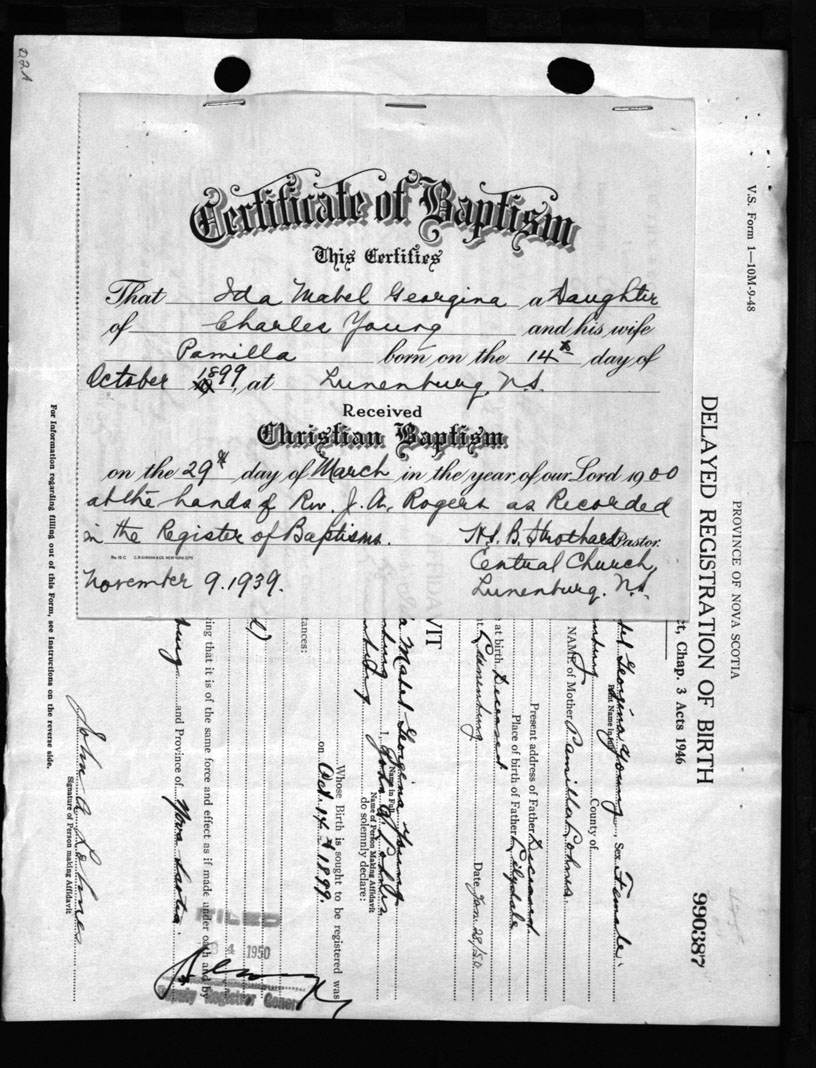 Certificate of Baptism
This Certifies
That Ida Mabel Georgina a Daughter
of Charles Young and his wife
Pamilla born on the 14th day of
October 1899, at Lunenburg, N.S.
Received
Christian Baptism
on the 29th day of March in the year of our Lord 1900
at the hands of Rev. J. A. Rogers as Recorded
in the Register of Baptisms. Pastor.
No. 10 C
Central Church,
November 9. 1939. Lunenburg, N.S.
V.S. Form 1—10M-9-48
PROVINCE OF NOVA SCOTIA
DELAYED REGISTRATION OF BIRTH
990387
ct, Chap. 3 Acts 1946
bel Georgina Young, Sex Female.
Print Name in full
enburg County of
NAME of Mother Pamilla
Present address of Father Deceased.
Place of birth of Father Lilydale
at birth Deceased
t. Lunenburg. Date Jan. 28/50.
FIDAVIT
a Mabel Georgina Young
Name in Full
nburg I, John A.
Name of Person Making Affidavit
do solemnly declare:
Whose Birth is sought to be registered was
on Oct. 14th 1899.
tances:
ing that it is of the same force and effect as if made under oath and by
burg and Province of Nova Scotia.
FILED
4 1950
Deputy Registrar General
John A.
Signature of Person making Affidavit
For Information regarding filling out of this Form, see Instructions on the reverse side.